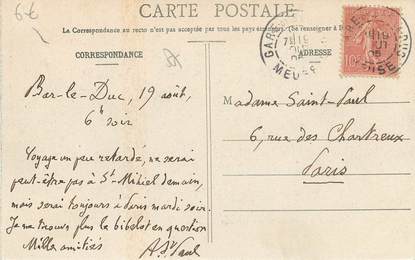 6-€
CARTE POSTALE
La Correspondance au recto n'est pas acceptée par tous les pays étrangers. (Se renseigner à
CORRESPONDANCE
ADRESSE
GARE
MEUSE
OISE
10
Bar-le-Duc, 19 août,
6h soir
Voyage un peu retardé, ne serai
peut-être pas à St-Mihiel demain,
mais serai toujours à Paris mardi soir.
Je ne trouve plus le bibelot en question
Mille amitiés
A. St Paul
Madame Saint-Paul
6, rue des Chartreux
Paris